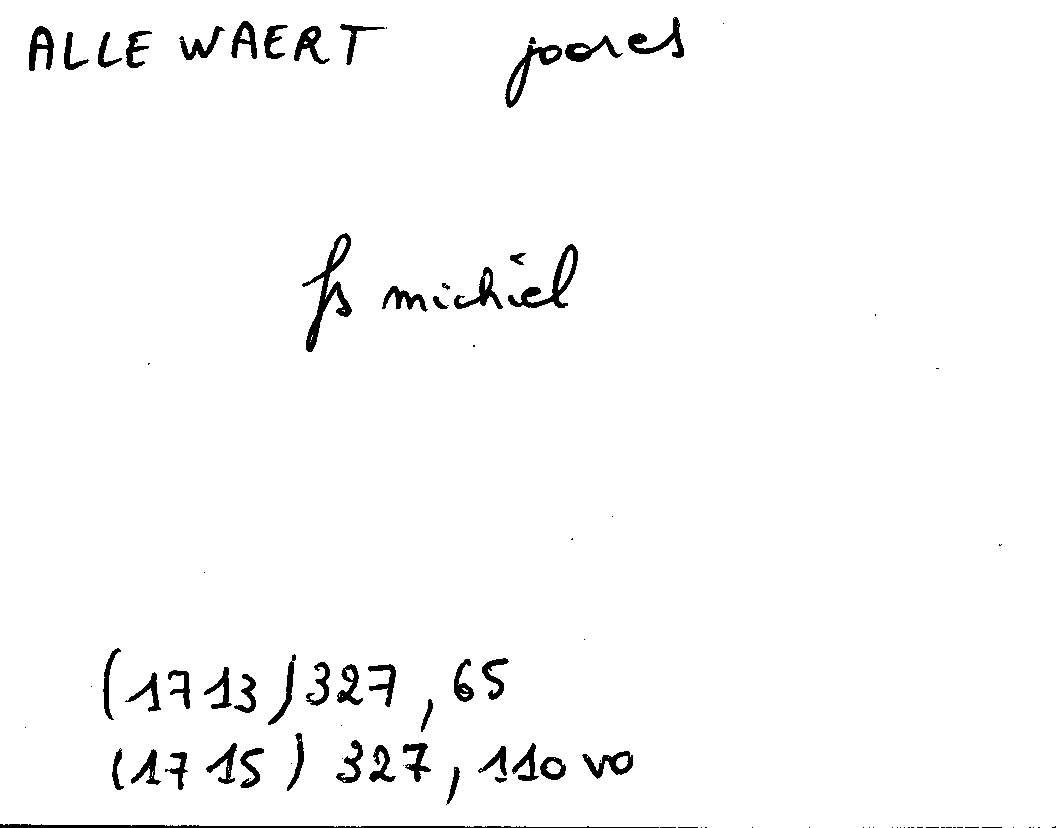 ALLEWAERT joores
fs michiel
(1713) 327, 65
(1715) 327, 110 vo